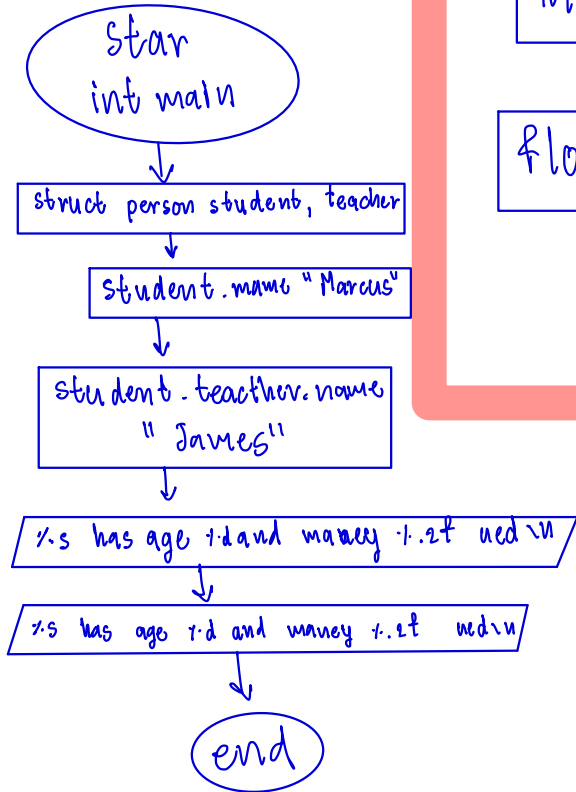 star
int main
struct person student, teacher
student.mame "Marcus"
student.teacther.name
"James"
%s has age %d and maney %.2f ued \n
%s has age %d and maney %.2f ued \n
end
flo